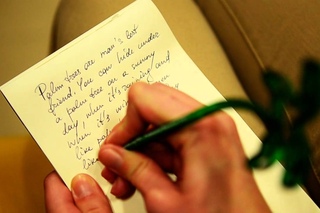 Palm trees are man's best
friend. You can hide under
a palm tree on a sunny
day, when it's raining and
when it's
like
like